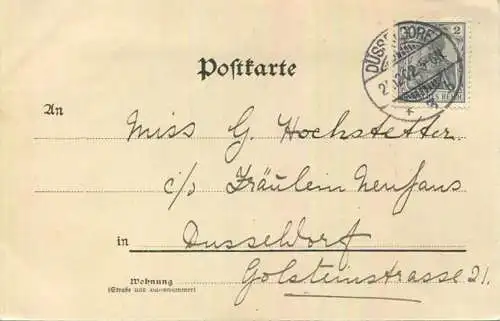 DÜSSELDORF
2
Postkarte
An
Miss G. Hochstetter
c/o Fräulein Neuhaus
in Dusseldorf
Wohnung
(Straße und Hausnummer)
Golsteinstrasse 21.